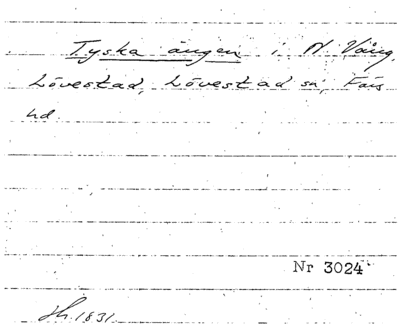 Tyska ängen i N. Vång,
Lövestad, Lövestad sn, Färs
hd.
Nr 3024
Jh. 1831.